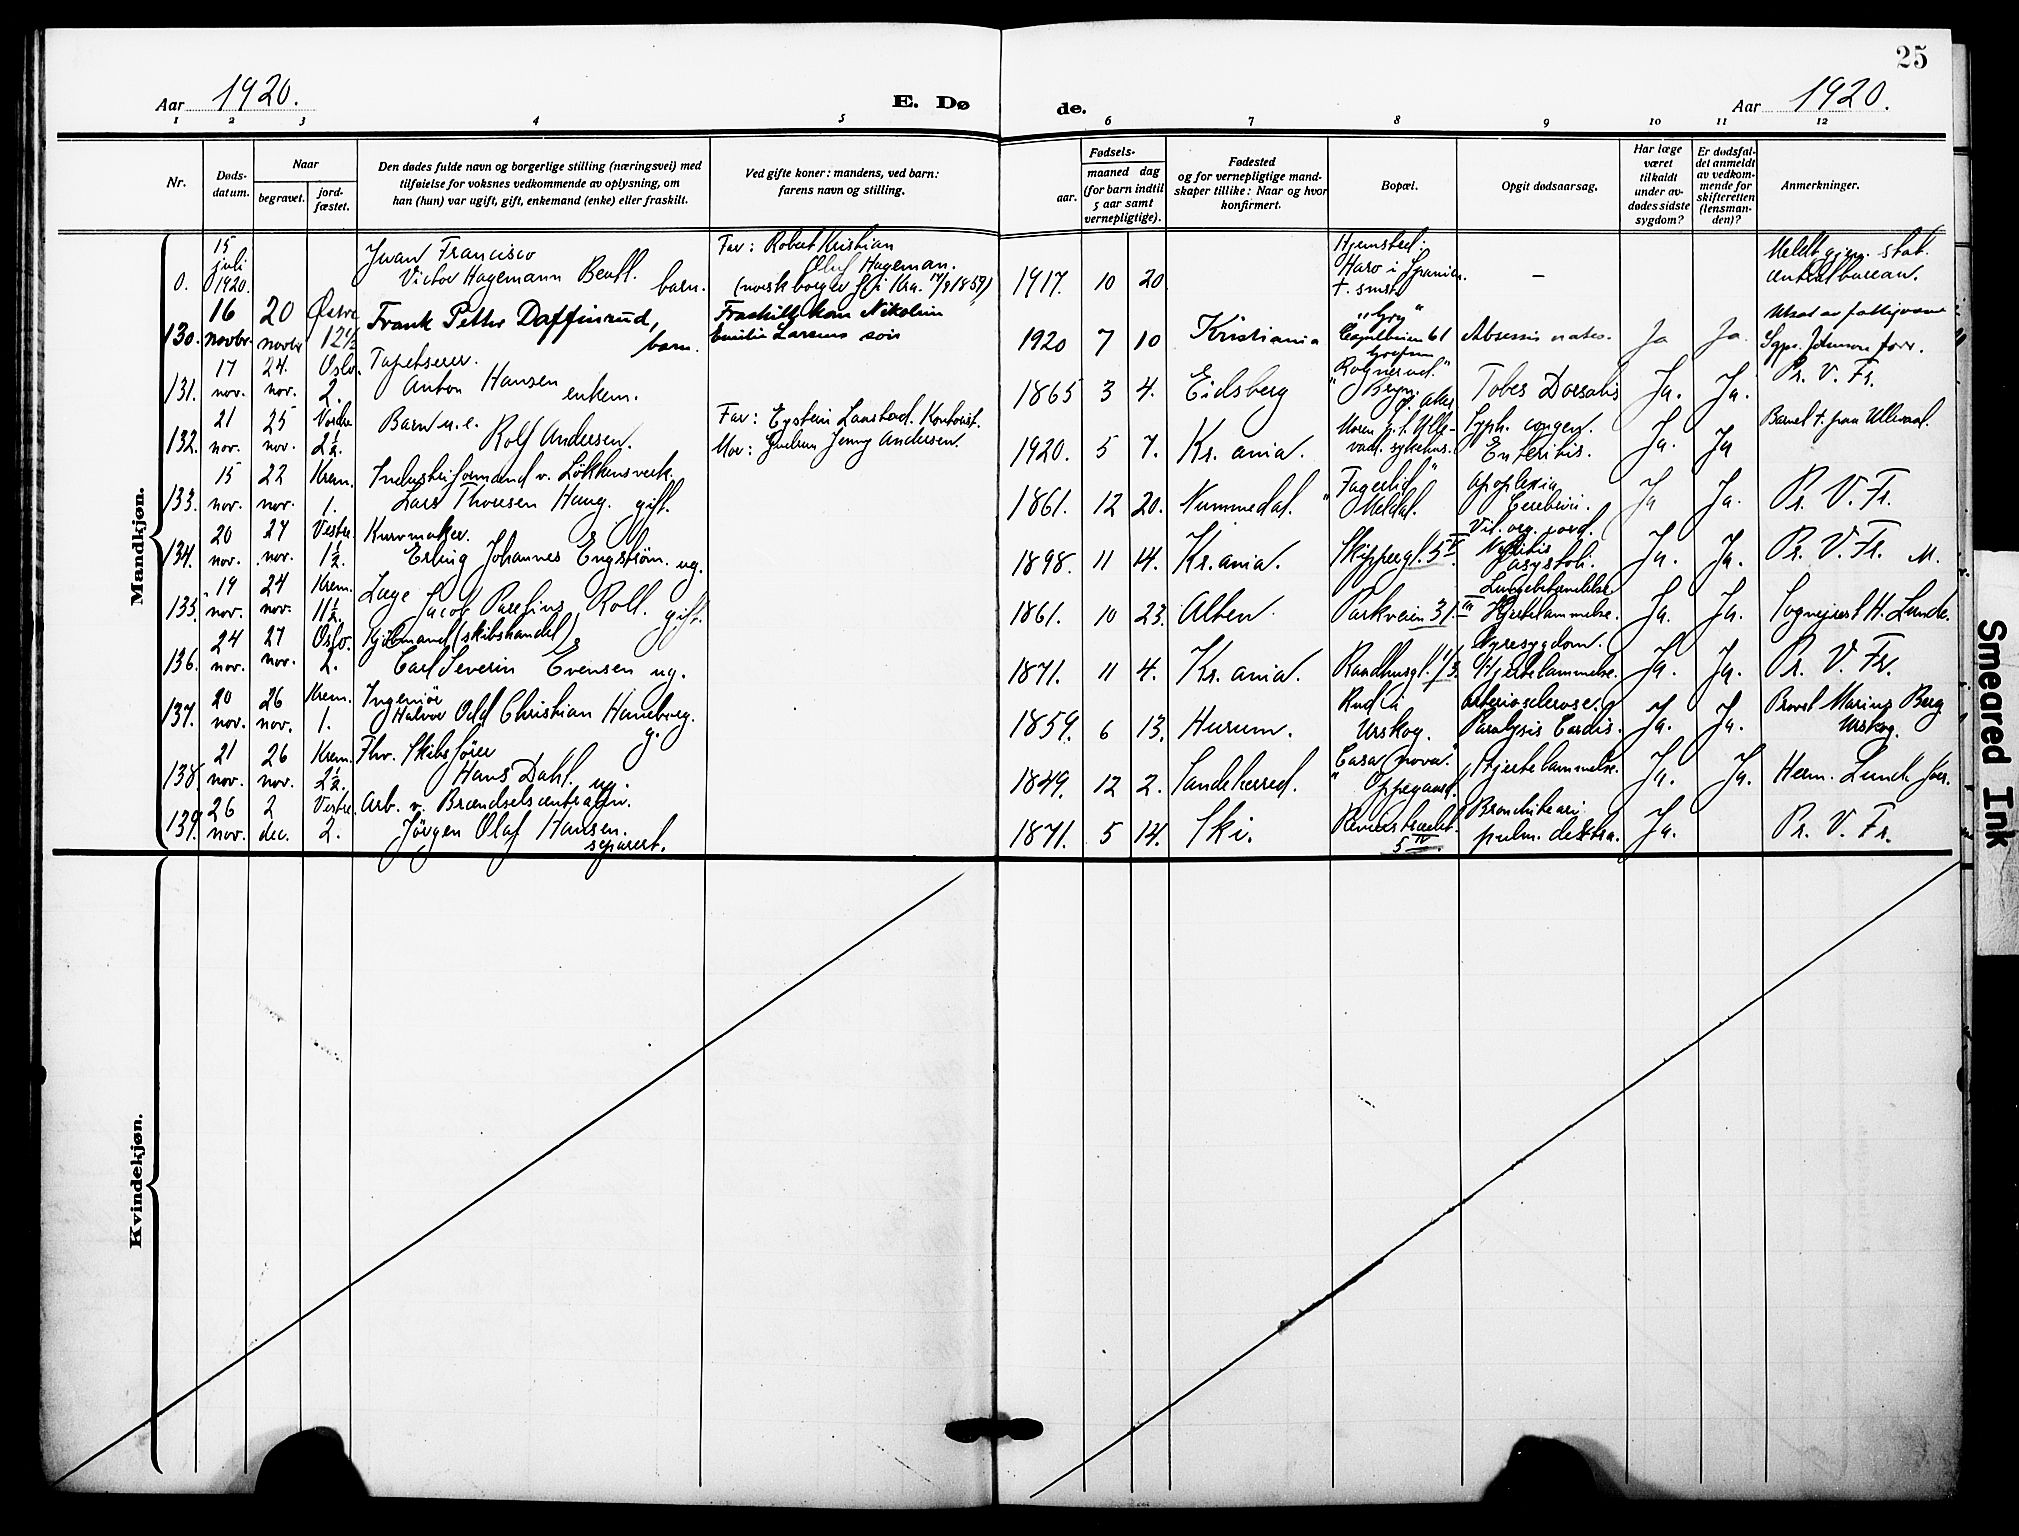 25
Aar 1920.
E. Dø de.
Aar 1920.
1 2 3 4 5 6 7 8 9 10 11 12
Nr.
Døds-
datum.
Naar
begravet.
jord-
fæstet.
Den dødes fulde navn og borgerlige stilling (næringsvei) med
tilføielse for voksnes vedkommende av oplysning, om
han (hun) var ugift, gift, enkemand (enke) eller fraskilt.
Ved gifte koner: mandens, ved barn:
farens navn og stilling.
Fødsels-
aar.
maaned dag
(for barn indtil
5 aar samt
vernepligtige).
Fødested
og for vernepligtige mand-
skaper tillike: Naar og hvor
konfirmert.
Bopæl.
Opgit dødsaarsag.
Har læge
været
tilkaldt
under av-
dødes sidste
sygdom?
Er dødsfal-
det anmeldt
av vedkom-
mende for
skifteretten
(lensman-
den)?
Anmerkninger.
Mandkjøn.
0.
15
juli
1920.
Juan Francisco
Victor Hagemann
barn.
Far: Robert Kristian
Oluf Hageman.
(norsk borger
1917. 10 20.
Hjemsted:
Haro i Spanien.
—
130.
16
novbr.
20
novbr
Østre
12½
Frank Petter Daffinrud,
barn.
Fraskilt kone Nikoline
Emilie Larsens søn
1920 7 10
Kristiania
Ja
Ja.
131.
17
nov.
24.
nov.
Oslo.
2.
Tapetserer.
Anton Hansen
enkem.
1865 3 4.
Eidsberg
Tobes Dorsalis
Ja.
Ja.
Pr. V. Fr.
132.
21
nov.
25
nov.
Vordre
2½.
Barn u. e.
Rolf Andersen.
Far: Eystein Lanstad. Kontorist.
Mor: Gudrun Jenny Andersen.
1920. 5 7.
Kr. ania.
Syph. congen.
Enteritis.
Ja.
Ja
133.
15
nov.
22
nov.
Krem.
1.
Industriformand v. Løkkensverk.
Lars Thoresen Haug. gift.
1861. 12 20.
Nummedal.
"Fagerlid"
Meldal.
apoplexia
Cerebri.
Ja
Ja.
Pr. V. Fr.
134.
20
nov.
27
nov.
Vestre
1½.
Kurvmaker.
Erling Johannes Engstrøm. ug.
1898. 11 14.
Kr. ania.
Skippergt. 5
Vit. org. cord.
Nefritis
Asystoli.
Ja.
Ja.
Pr. V. Fr. M.
135.
19
nov.
24
nov.
Krem.
11½.
Læge
Jacob Parelius Roll. gift.
1861. 10 23.
Alten.
Parkveien 31 III
Lungebetændelse
Hjertelammelse.
Ja.
Ja.
Sogneprest H. Lunde.
136.
24
nov.
27
nov.
Oslo.
2.
Kjøbmand (skibshandel)
Carl Severin Evensen ug.
1871. 11 4.
Kr. ania.
Raadhusgt. 1/3.
Nyresygdom.
Hjertelammelse.
Ja.
Ja.
Pr. V. Fr.
137.
20
nov.
26
nov.
Krem.
1.
Ingeniør
Halvor Odd Christian Haneborg.
g.
1859. 6 13.
Hurum.
Rud i
Urskog.
arteriosclerose.
Paralysis Cordis.
Ja.
Ja.
Provst Marius Berg
Urskog.
138.
21
nov.
26
nov.
Krem.
2½.
Fhv. Skibsfører
Hans Dahl. ug.
1849. 12 2.
Sandeherred.
"Casa Nova".
Oppegaard.
Hjertelammelse.
Ja.
Ja.
Herm. Lunde for.
139.
26
nov.
2
dec.
Vestre
2.
Arb. v. Brændselscentralen.
Jörgen Olaf Hansen.
separert.
1871. 5 14.
Ski.
Revierstrædet.
5 IV.
pulm. dextra.
Ja.
Pr. V. Fr.
Kvindekjøn.
Smeared Ink